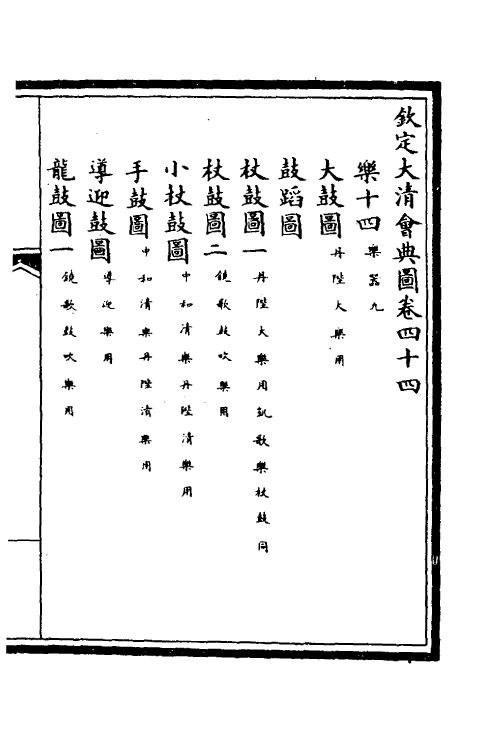 欽定大清會典圖卷四十四
樂十四樂器九
大鼓圖丹陛大樂用
鼓蹈圖
杖鼓圖一丹陛大樂用凱歌樂杖鼓同
杖鼓圖二鐃歌鼓吹樂用
小杖鼓圖中和清樂丹陛清樂用
手鼓圖中和清樂丹陛清樂用
導迎鼓圖導迎樂用
龍鼓圖一鐃歌鼓吹樂用